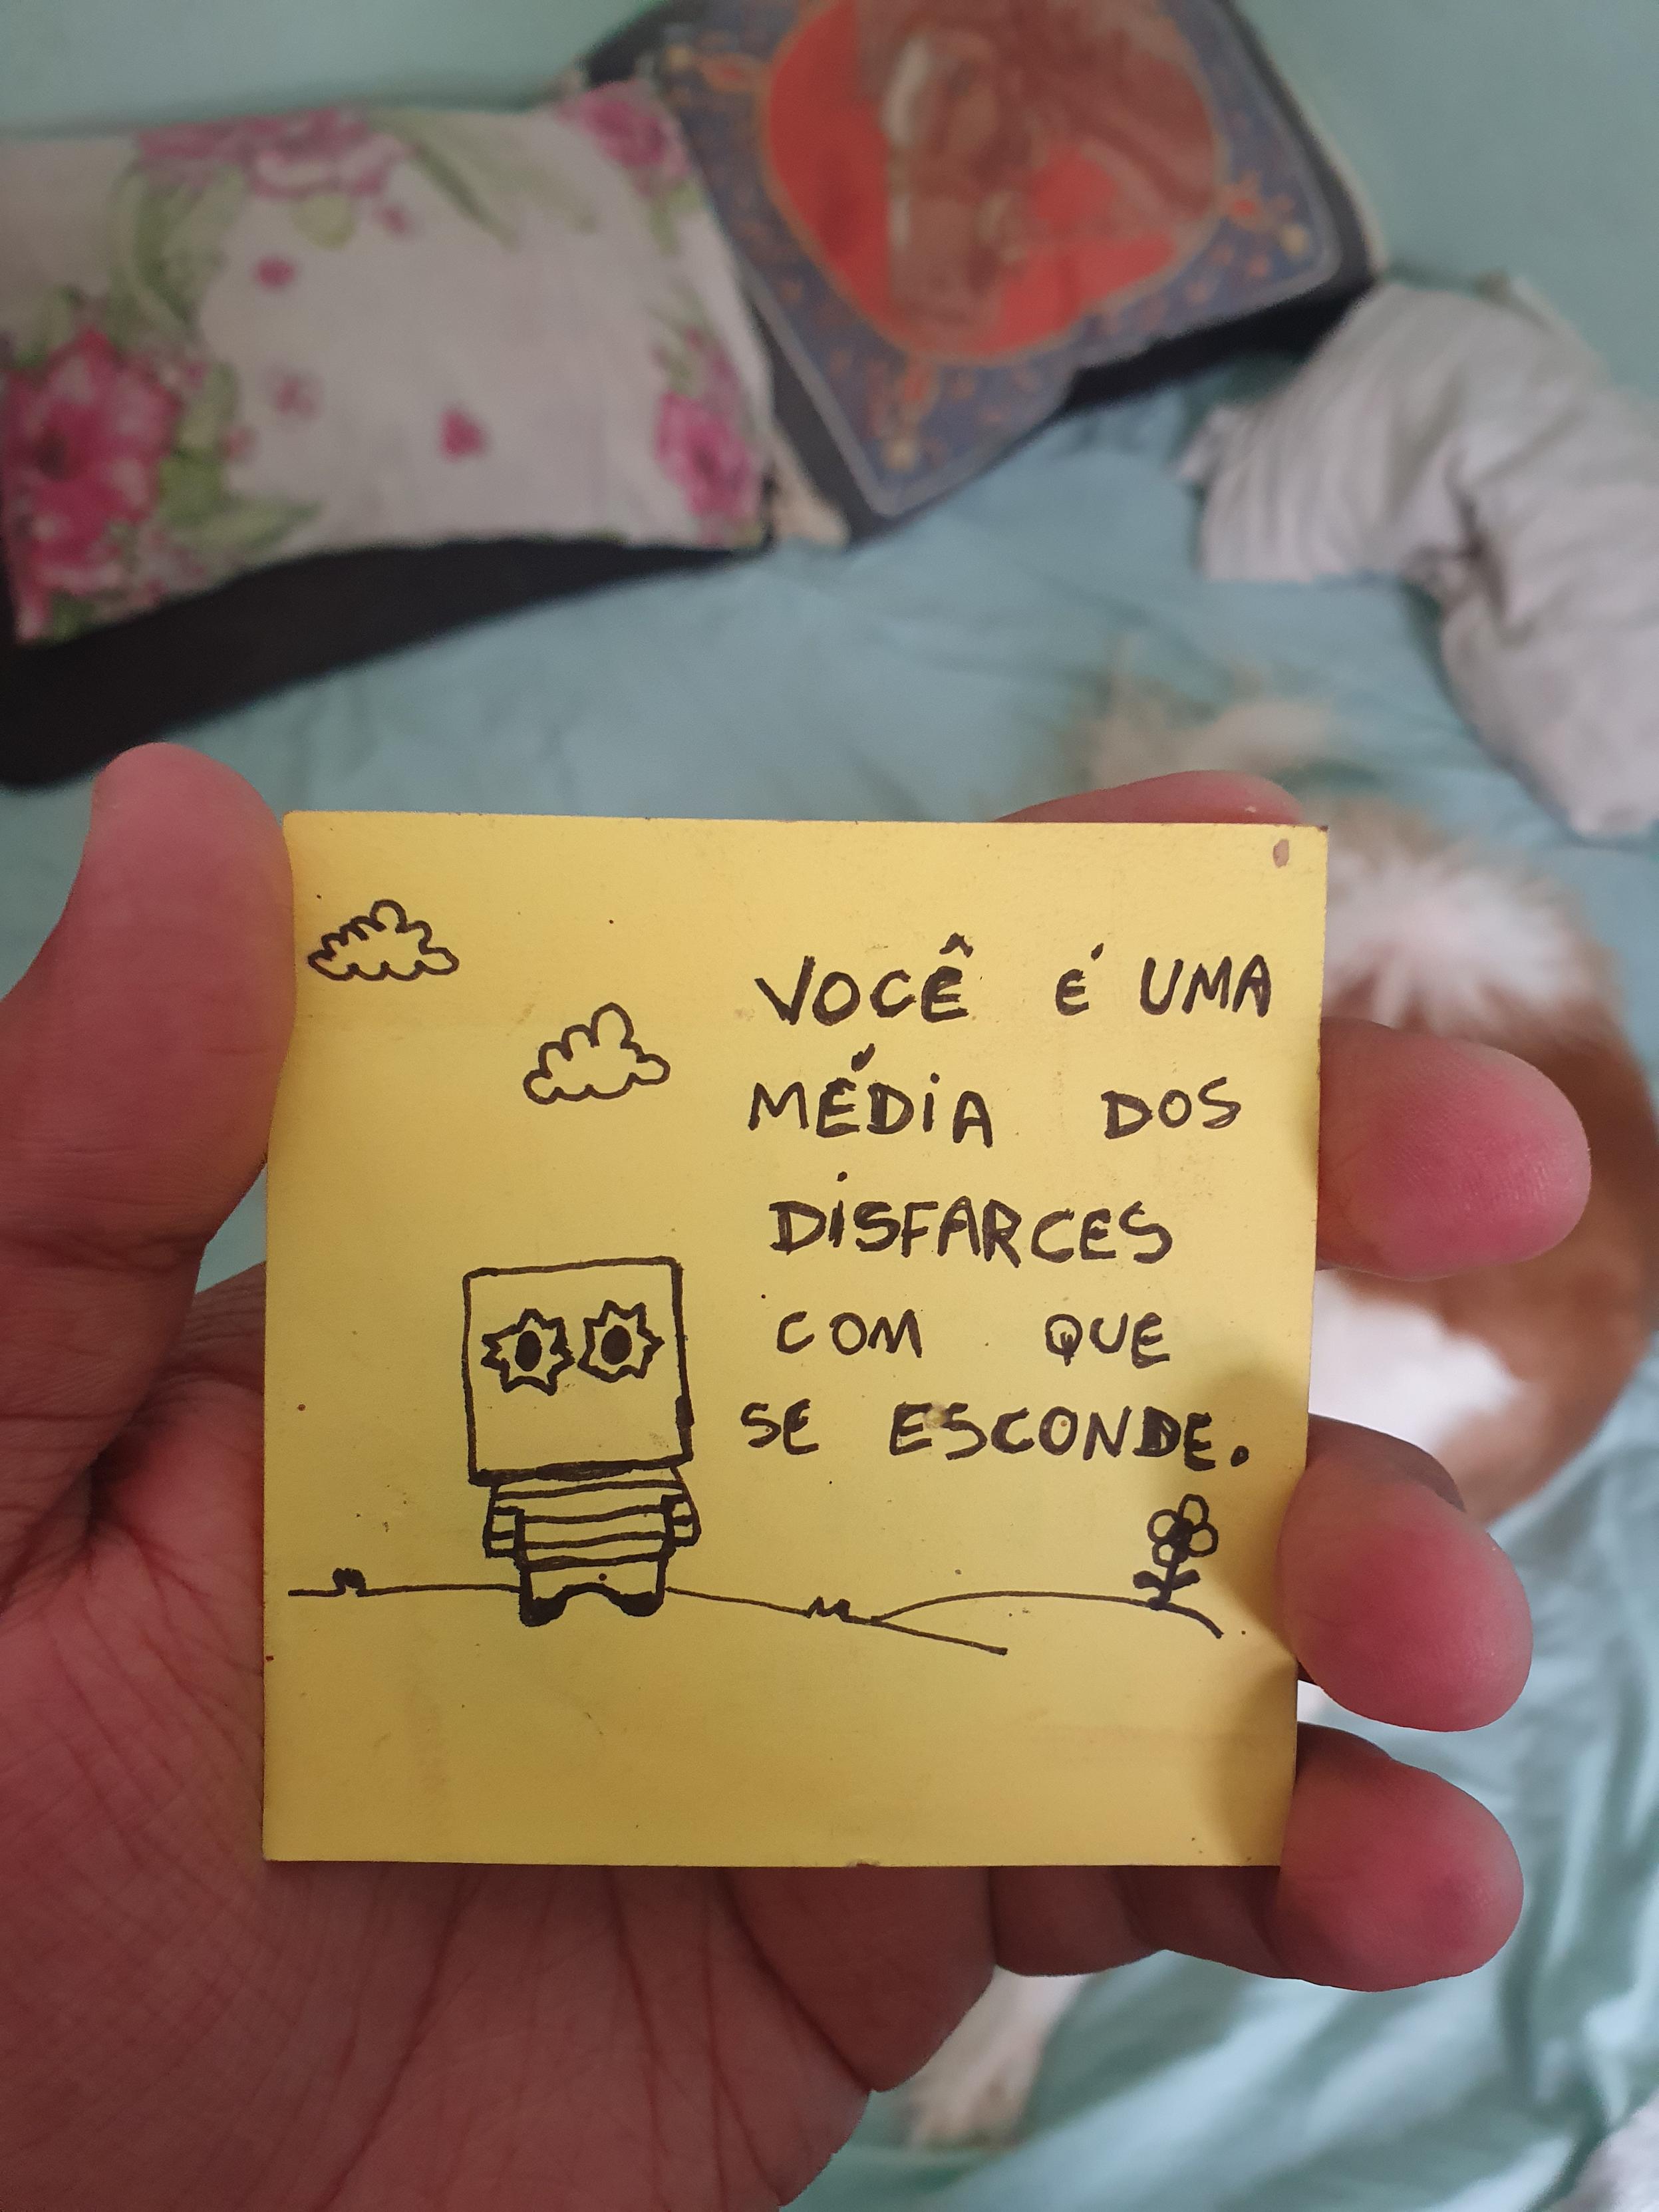 VOCÊ É UMA
MÉDIA DOS
DISFARCES
COM QUE
SE ESCONDE.